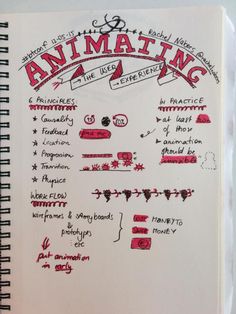 #btconf 12-05-15
Rachel Nabors @rachelnabors
ANIMATING
THE USER
EXPERIENCE
6 PRINCIPLES:
* Causality
* Feedback
* Location
* Progression
* Transition
* Physics
IN PRACTICE
* at least
of those
* animation
should be
WORK FLOW
wireframes & storyboards
& prototypes
etc
put animation
in early
MONEY
MONEY